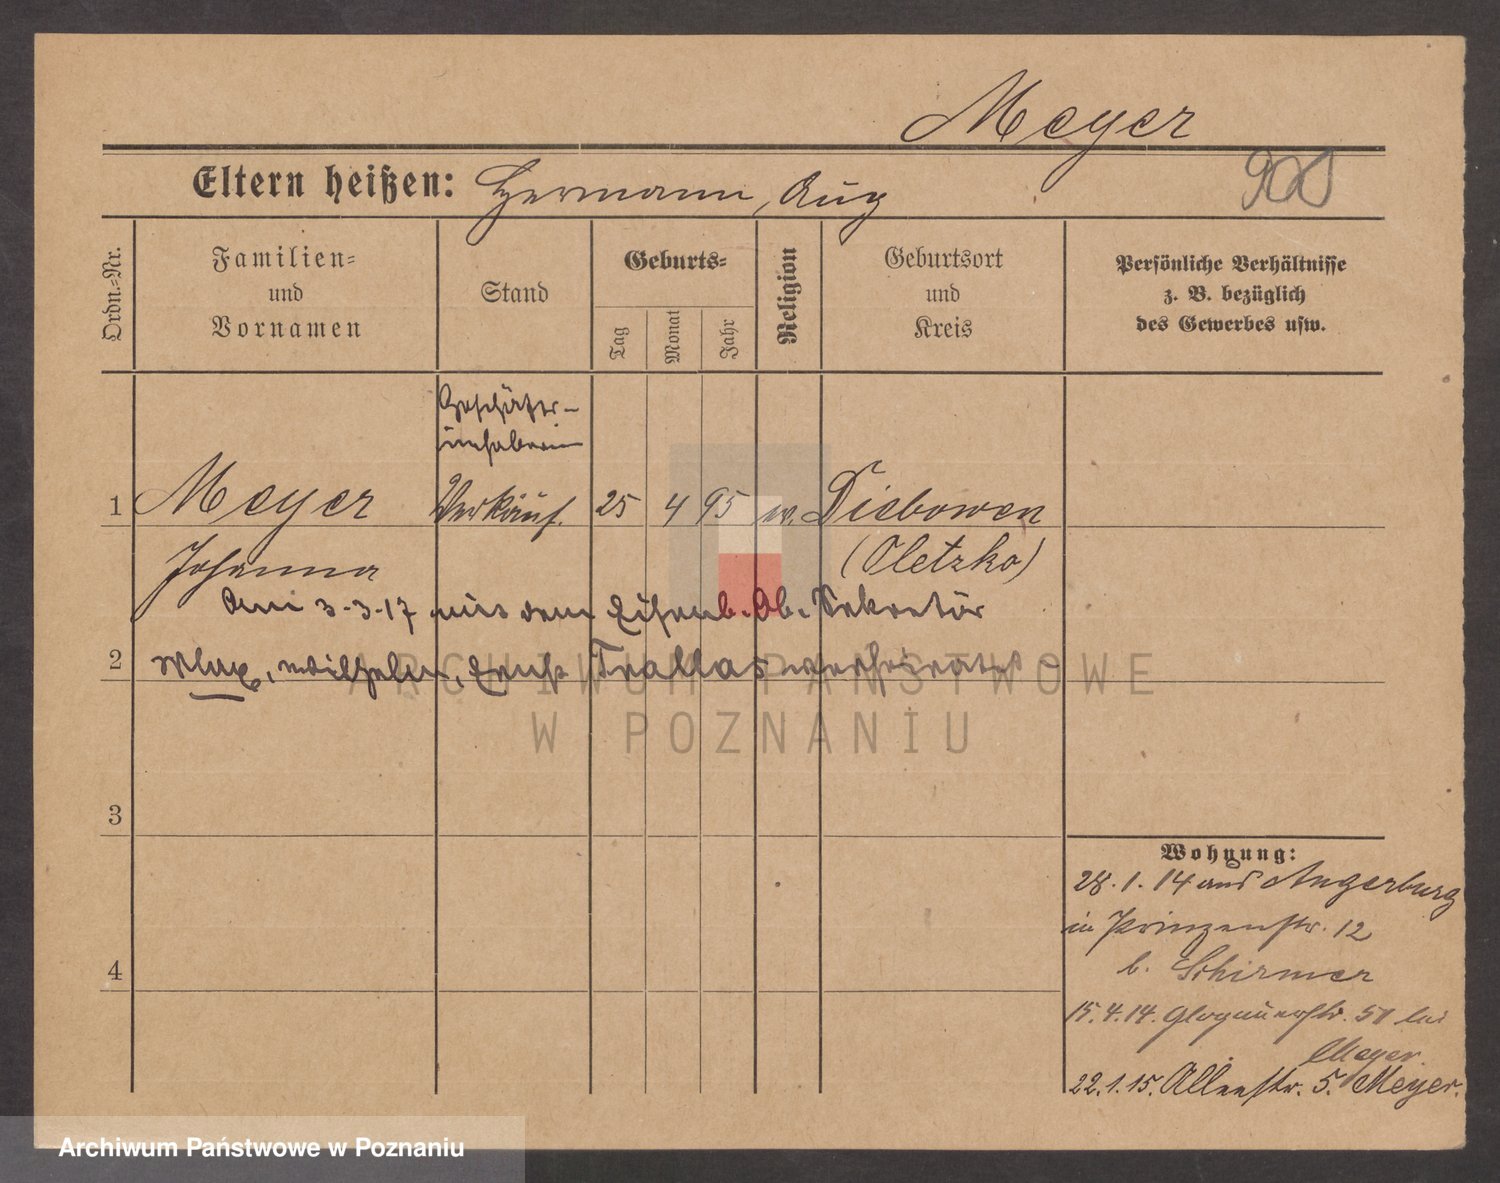 Meyer
Eltern heißen: Hermann, Aug
Ordn.-Nr.
Familien-
und
Vornamen
Stand
Geburts-
Tag
Monat
Jahr
Religion
Geburtsort
und
Kreis
Persönliche Verhältnisse
z. B. bezüglich
des Gewerbes usw.
Geschäfts-
inhaberin
1 Meyer Verkäuf. 25 4 95 ev. Diebowen
Johanna (Oletzko)
Am 3-3-17 mit dem Eisenb. Ob. Sekretär
2 Max, Wilhelm, Ernst Trallas verheiratet
3
4
Wohnung:
28.1.14 aus Angerburg
in Prinzenstr. 12
b. Schirmer
15.4.14. Glogauerstr. 51 bei
Meyer.
22.1.15. Alleestr. 5. Meyer.
ARCHIWUM PAŃSTWOWE
W POZNANIU
Archiwum Państwowe w Poznaniu